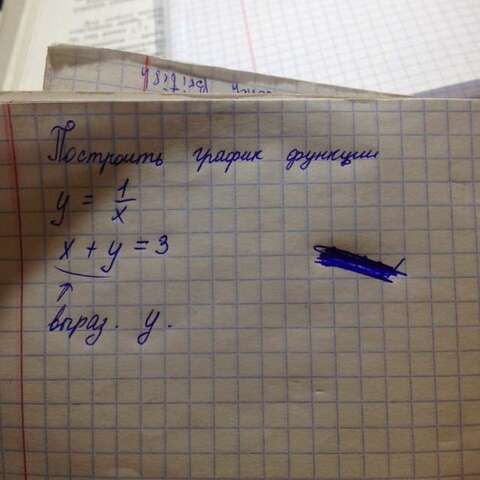 Построить график функции
y = 1/x
x + y = 3
↑
выраз. y.